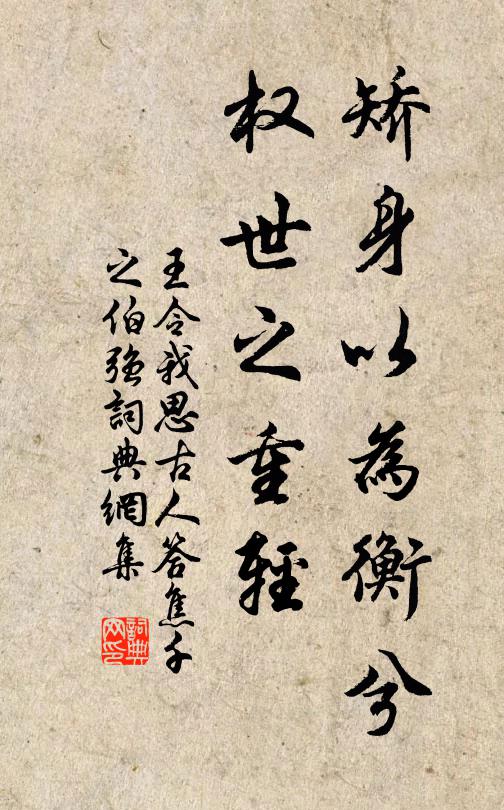 矫身以為衡兮
权世之重輕
王令我思古人答焦千
之伯强詞典網集
詞典
网印